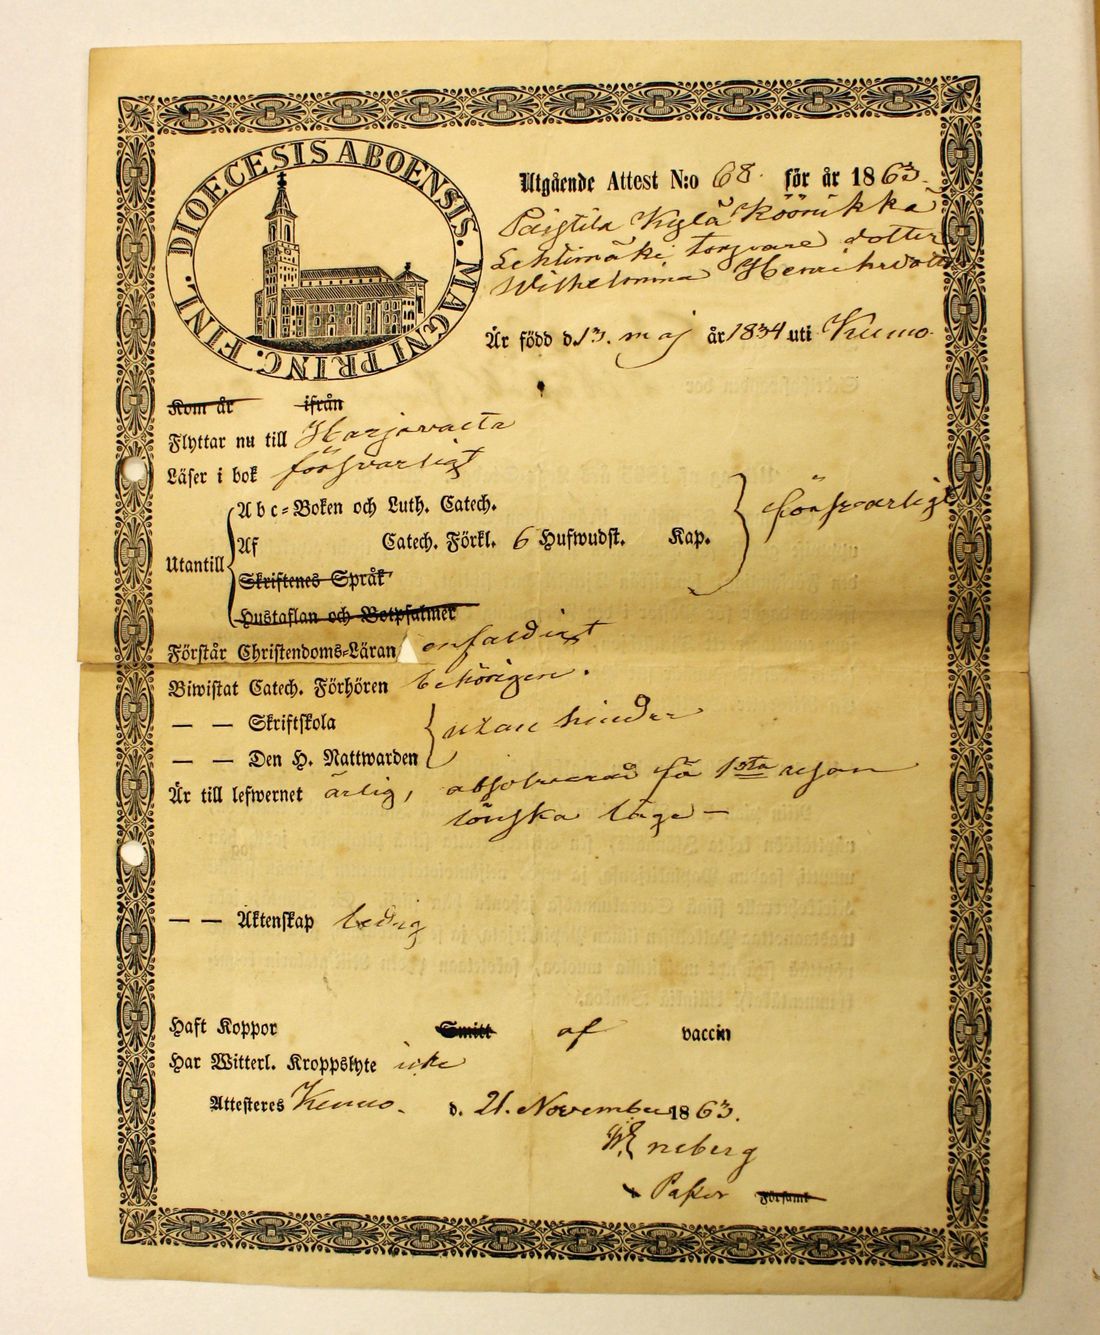 DIOECESIS ABOENSIS. MAGNI PRINC. FINL.
Utgående Attest N:o 68. för år 1863.
Paistila Kylä Köönikkä
Lehtimäki torpare dotter
Wilhelmina Henriksdotter
Är född d. 13. maj år 1834 uti Kumo.
Kom år ifrån
Flyttar nu till Harjavalta
Läser i bok försvarligt
Utantill
Abc=Boken och Luth. Catech.
Af Catech. Förkl. 6 Hufwudst. Kap. försvarligt
Skriftenes Språk
Hustaflan och Botpsalmer
Förstår Christendoms=Läran enfaldigt
Biwistat Catech. Förhören behörigen.
— — Skriftskola
— — Den H. Nattwarden utan hinder
Är till lefwernet ärlig, absolverad få 1sta resan
lönska läge —
— — Äktenskap ledig
Haft Koppor Smitt af vaccin
Har Witterl. Kroppslyte icke
Attesteres Kumo. d. 21. November 1863.
Eneberg
Pastor Församl